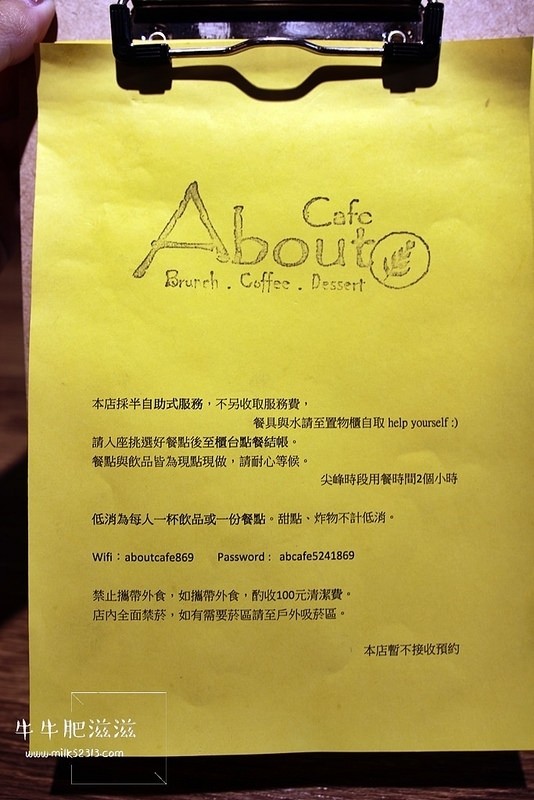 Cafe
About
Brunch . Coffee . Dessert
本店採半自助式服務，不另收取服務費，
餐具與水請至置物櫃自取 help yourself :)
請入座挑選好餐點後至櫃台點餐結帳。
餐點與飲品皆為現點現做，請耐心等候。
尖峰時段用餐時間2個小時
低消為每人一杯飲品或一份餐點。甜點、炸物不計低消。
Wifi：aboutcafe869 Password： abcafe5241869
禁止攜帶外食，如攜帶外食，酌收100元清潔費。
店內全面禁菸，如有需要菸區請至戶外吸菸區。
本店暫不接收預約
牛牛肥滋滋
www.milk52313.com